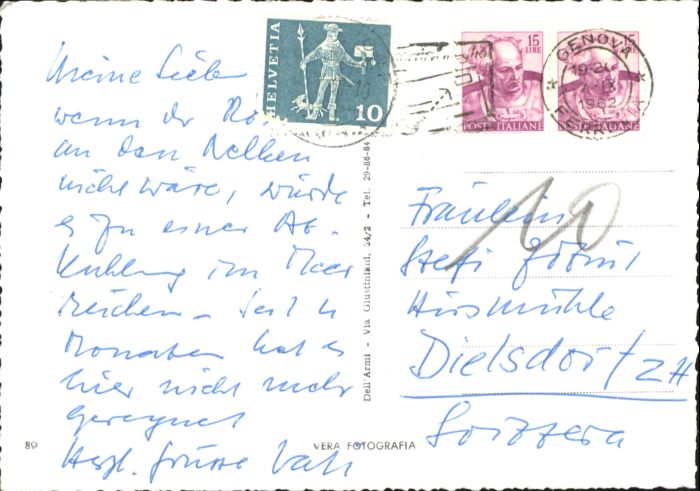 Meine Liebe
wenn der
an den Nelken
nicht wäre, würde
es zu einer Ab-
kühlung im Meer
reichen - Seit 4
Monaten hat es
hier nicht mehr
geregnet
Herzl. Grüsse Vati
HELVETIA
10
15
LIRE
POSTE ITALIANE
15
LIRE
POSTE ITALIANE
GENOVA
19-21
1962
Dell'Armi - Via Giustiniani, 24/2 - Tel. 29-86-84
10
Fräulein
Stefi
Hirsmühle
Dielsdorf ZH
Svizzera
89
VERA FOTOGRAFIA